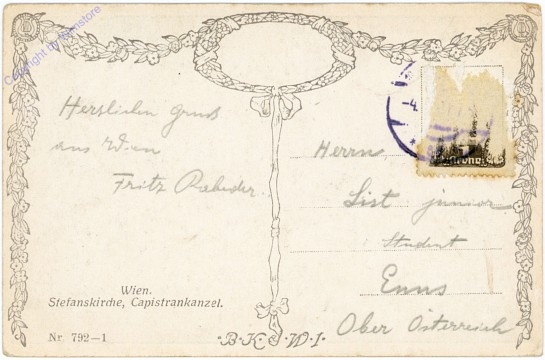 Copyright by
Herzlichen Gruß
aus Wien
Fritz
Herrn
List junior
Student
Enns
Ober Österreich
Wien.
Stefanskirche, Capistrankanzel.
Nr 792—1
·B·K·W·I·
-4.